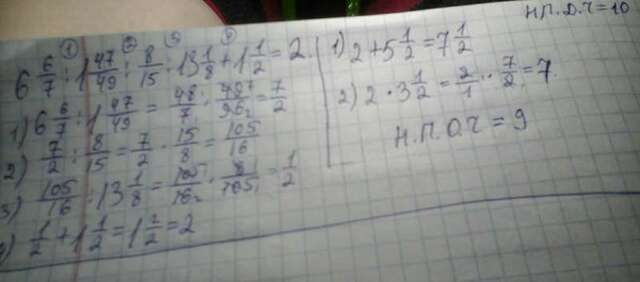 Н.П.О.Ч = 10
① ② ③ ④
6 6/7 : 1 47/49 : 8/15 : 13 1/8 + 1 1/2 = 2
1) 6 6/7 : 1 47/49 = 48/7 · 49/96 = 7/2
2) 7/2 : 8/15 = 7/2 · 15/8 = 105/16
3) 105/16 : 13 1/8 = 105/16 · 8/105 = 1/2
4) 1/2 + 1 1/2 = 1 2/2 = 2
1) 2 + 5 1/2 = 7 1/2
2) 2 · 3 1/2 = 2/1 · 7/2 = 7
Н.П.О.Ч = 9